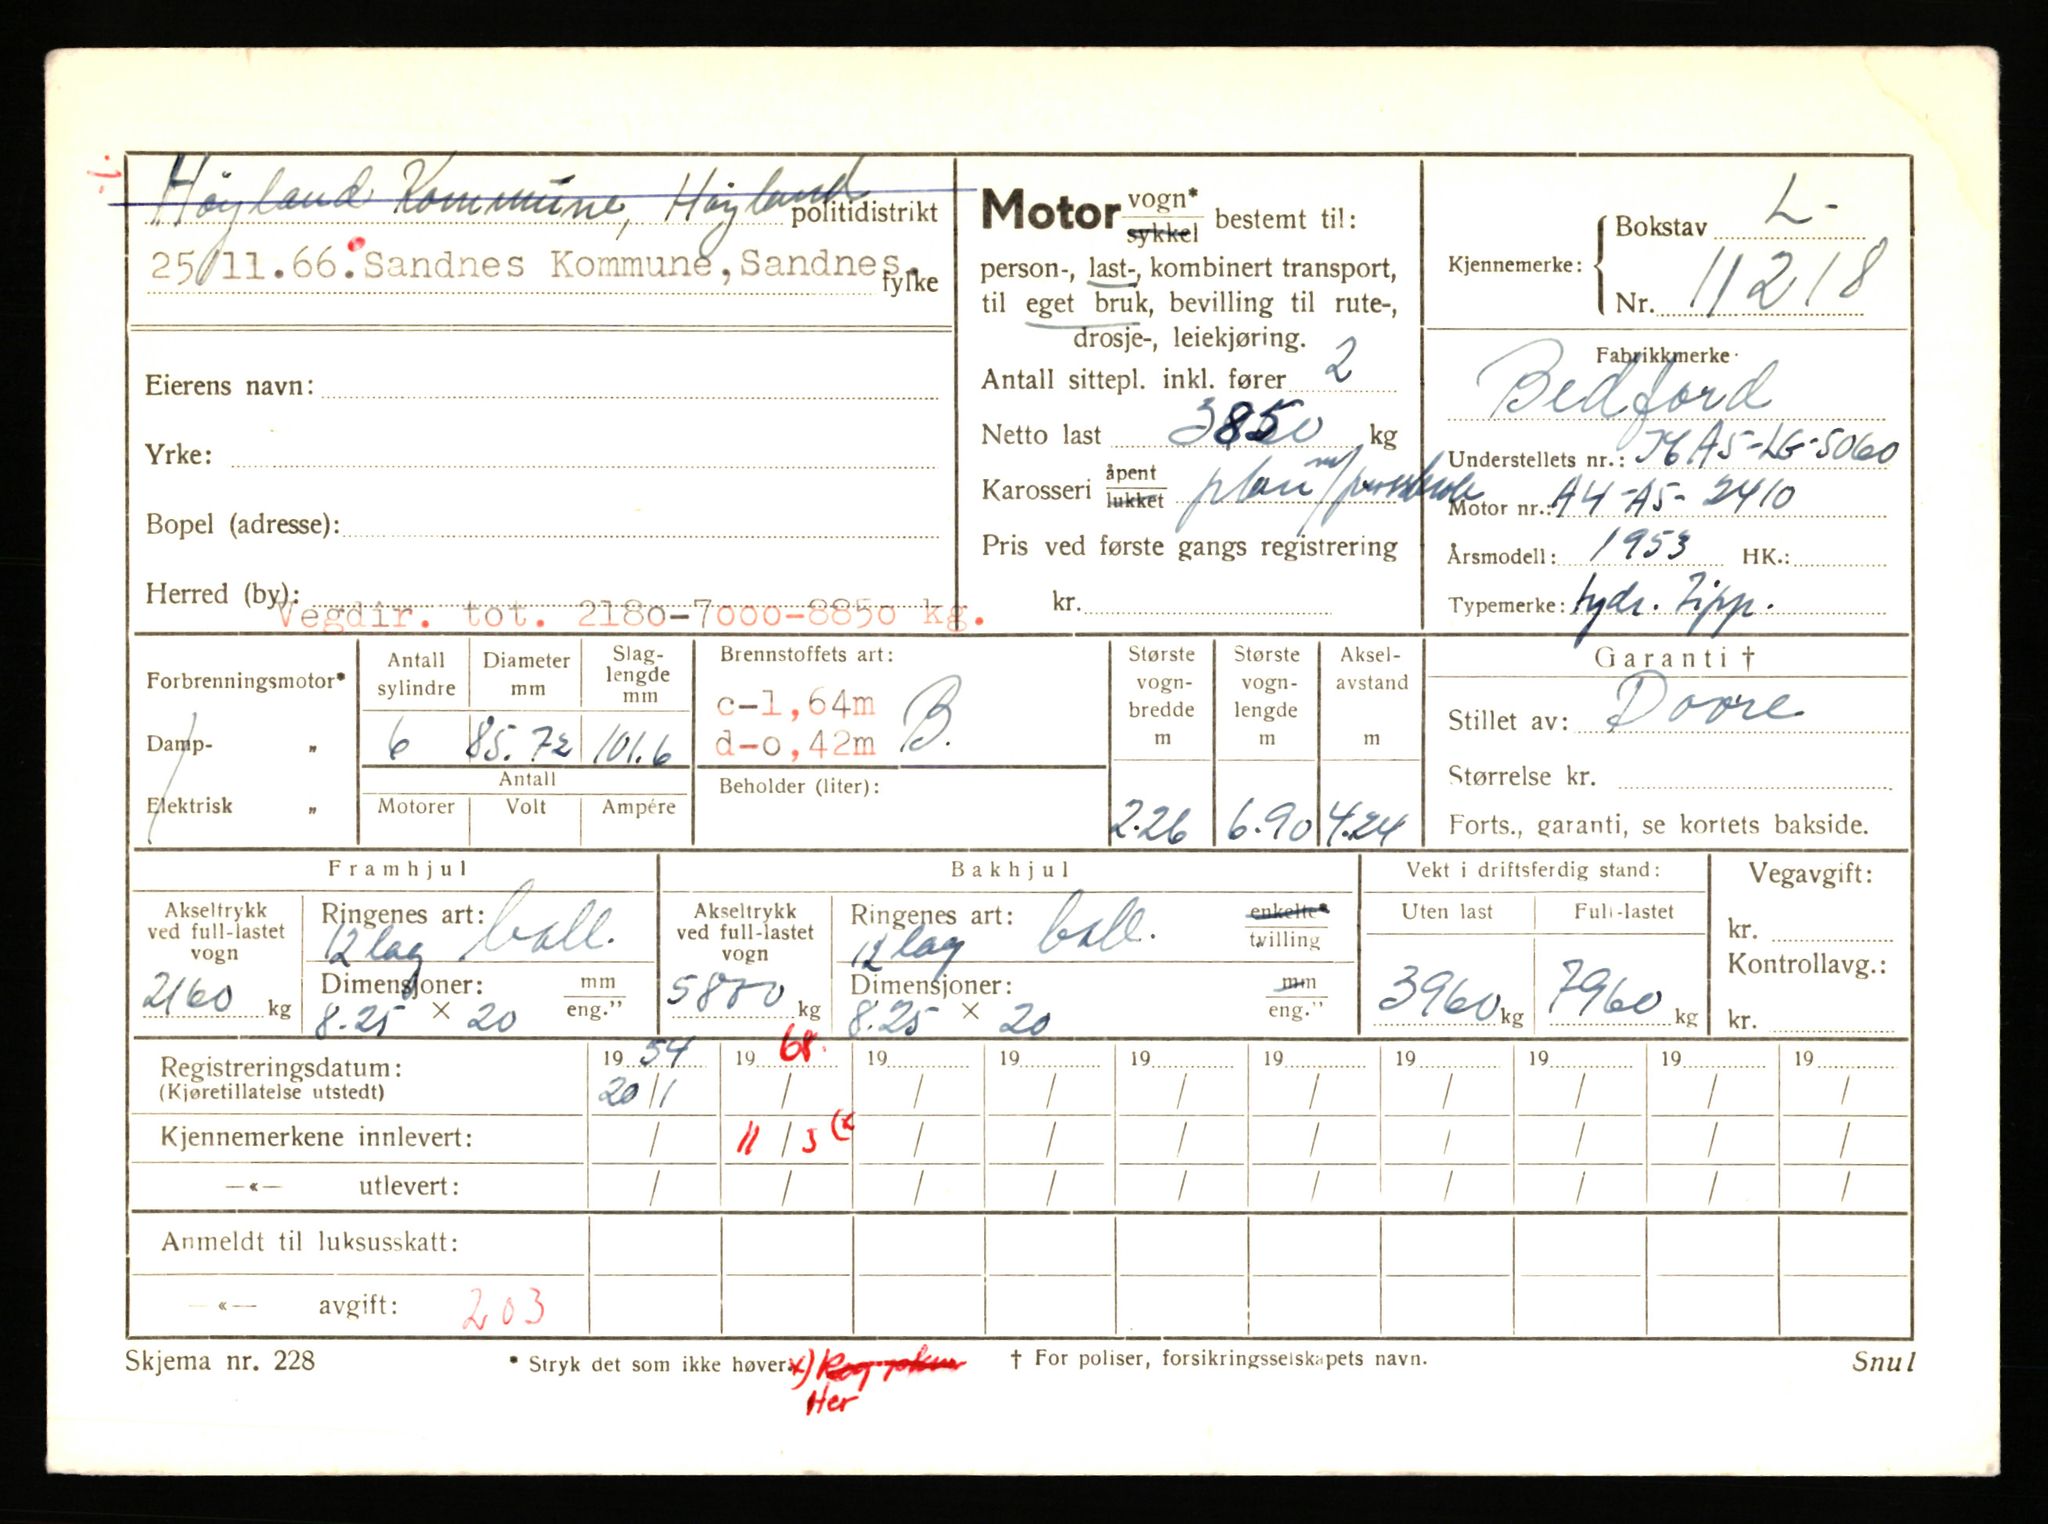 Høyland Kommune, Høyland politidistrikt
25/11.66. Sandnes Kommune, Sandnes. fylke
Eierens navn:
Yrke:
Bopel (adresse):
Herred (by):
Vegdir. tot. 2180-7000-8850 kg.
Motor vogn* sykkel bestemt til:
person-, last-, kombinert transport,
til eget bruk, bevilling til rute-,
drosje-, leiekjøring.
Antall sittepl. inkl. fører 2
Netto last 3850 kg
Karosseri åpent lukket plan m/
Pris ved første gangs registrering
kr.
Kjennemerke: Bokstav L-
Nr. 11218
Fabrikkmerke
Bedford
Understellets nr.: A5-LG-5060
Motor nr.: A4-A5-2410
Årsmodell: 1953 HK.:
Typemerke: hydr. Tipp.
Forbrenningsmotor*
Damp- „
Elektrisk „
Antall sylindre
6
Diameter mm
85.72
Slag-lengde mm
101.6
Antall
Motorer Volt Ampére
Brennstoffets art:
c-1,64m
d-0,42m B.
Beholder (liter):
Største vogn-bredde m
2.26
Største vogn-lengde m
6.90
Aksel-avstand m
4.24
Garanti †
Stillet av:
Størrelse kr.
Forts., garanti, se kortets bakside.
Framhjul
Akseltrykk ved full-lastet vogn
2160 kg
Ringenes art: 12 lag ball.
Dimensjoner: mm eng."
8.25 × 20
Bakhjul
Akseltrykk ved full-lastet vogn
5800 kg
Ringenes art: 12 lag ball. enkelte* tvilling
Dimensjoner: mm eng."
8.25 × 20
Vekt i driftsferdig stand:
Uten last Full-lastet
3960 kg 7960 kg
Vegavgift:
kr.
Kontrollavg.:
kr.
Registreringsdatum: 19 54 19 68. 19 19 19 19 19 19 19 19
(Kjøretillatelse utstedt) 20/1 / / / / / / / / /
Kjennemerkene innlevert: / 11/3 (x / / / / / / / /
—«— utlevert: / / / / / / / / / /
Anmeldt til luksusskatt:
—«— avgift: 203
Skjema nr. 228 * Stryk det som ikke høver. x) † For poliser, forsikringsselskapets navn. Snul
Her